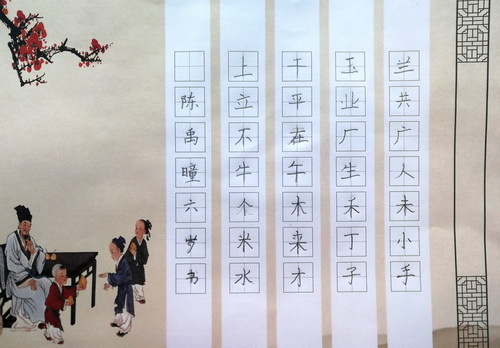 兰共广人未小手
玉业厂生禾丁子
干平在午木来才
上立不牛个米水
陈禹曈六岁书